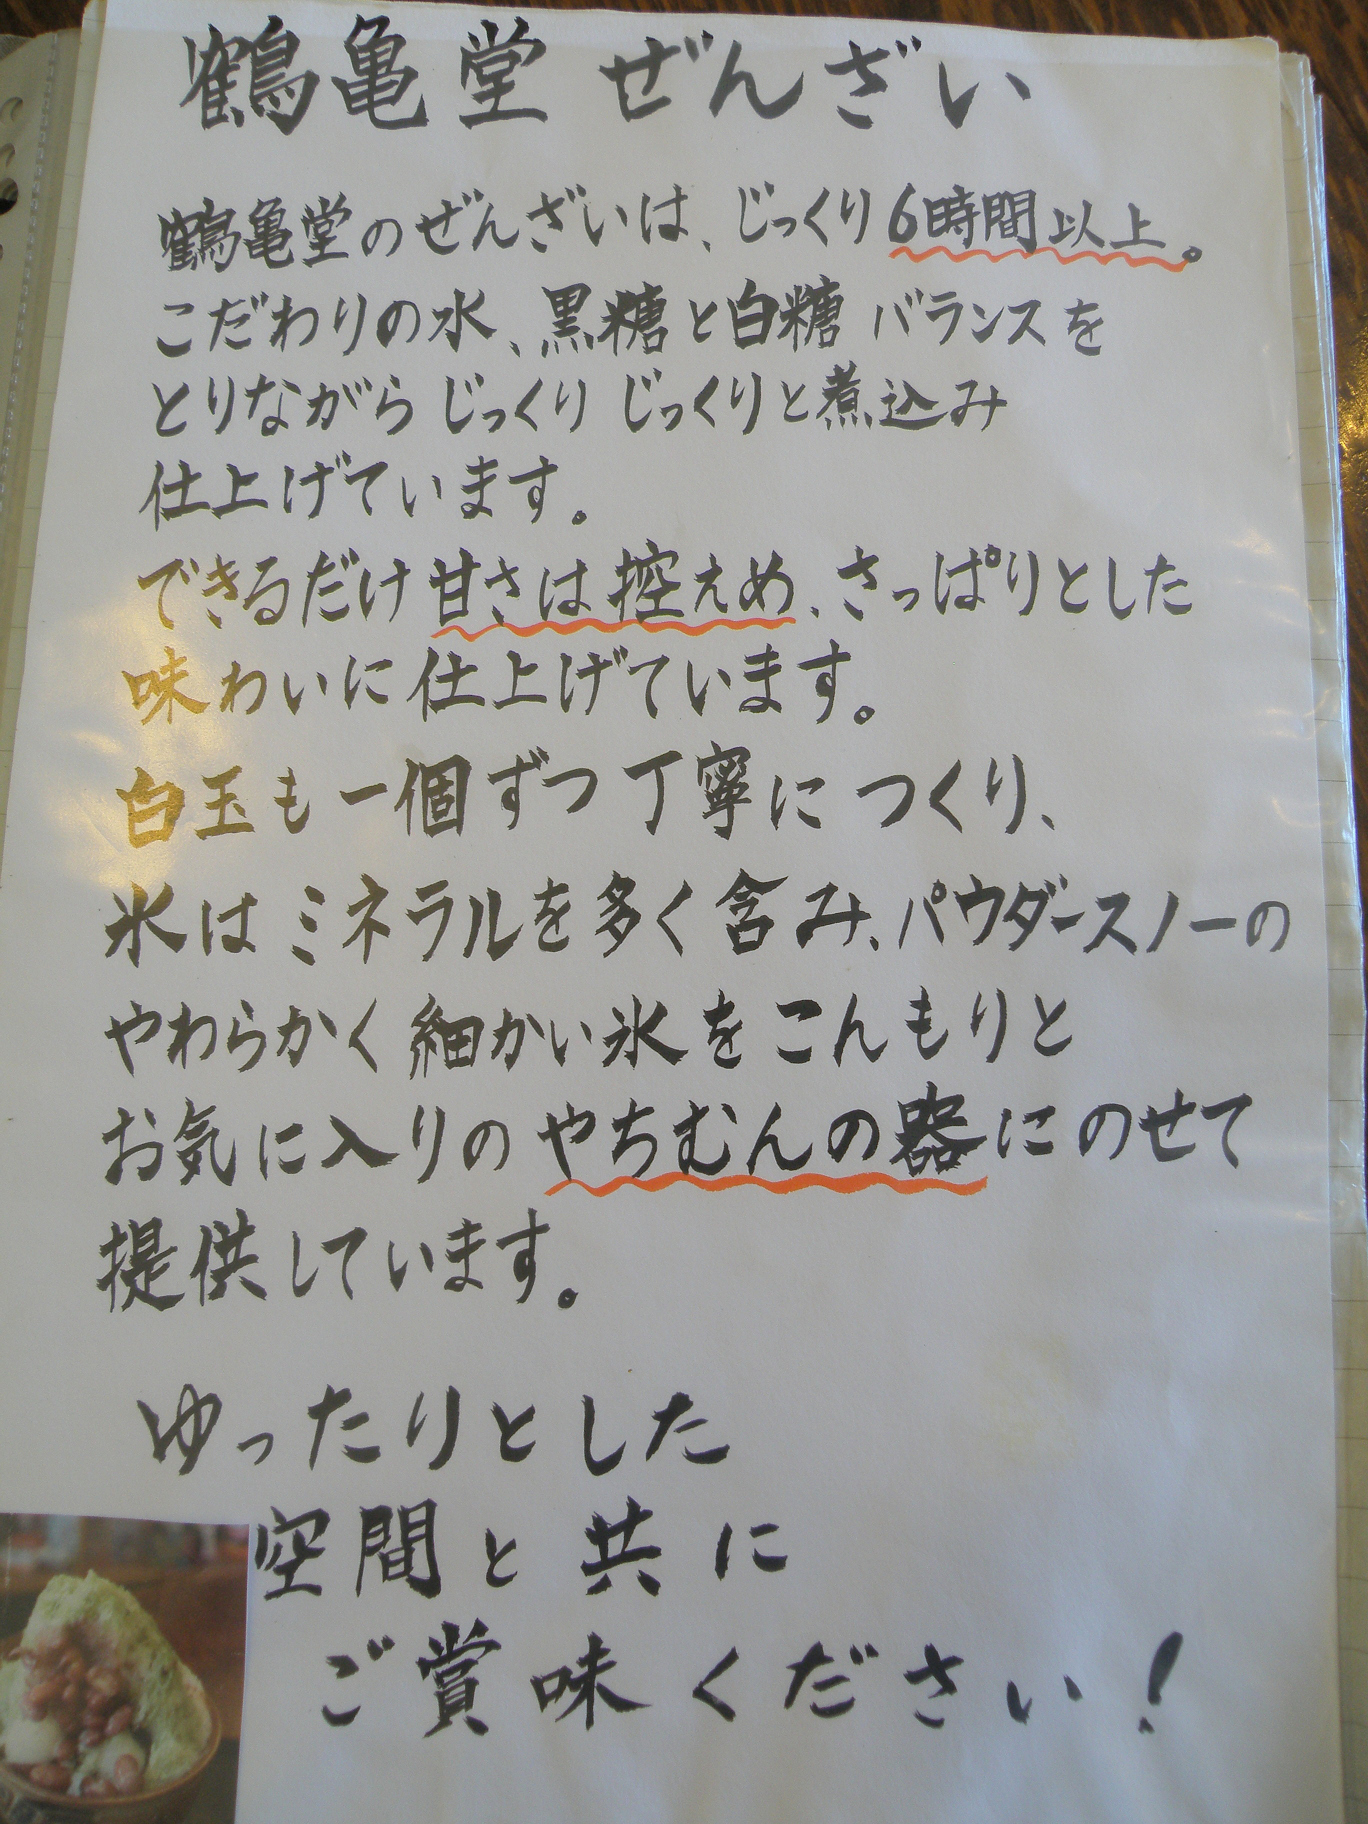 鶴亀堂 ぜんざい
鶴亀堂のぜんざいは、じっくり6時間以上。
こだわりの水、黒糖と白糖 バランスを
とりながら じっくり じっくりと煮込み
仕上げています。
できるだけ甘さは控えめ、さっぱりとした
味わいに仕上げています。
白玉も一個ずつ丁寧に つくり、
氷は ミネラルを多く含み、パウダースノーの
やわらかく細かい氷を こんもりと
お気に入りの やちむんの器に のせて
提供しています。
ゆったりとした
空間と共に
ご賞味ください！